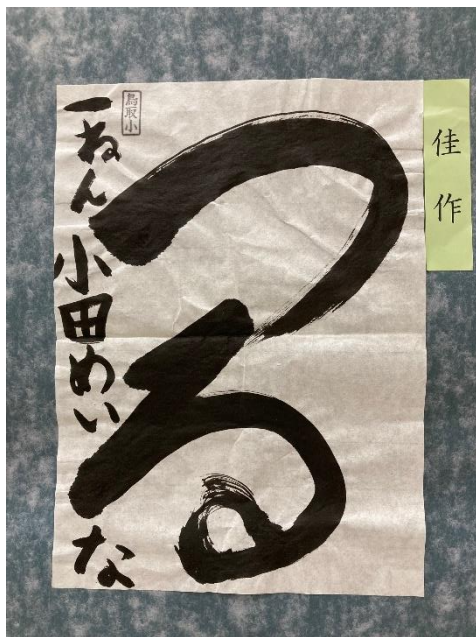 佳作
つる
鳥取小
一ねん小田めいな